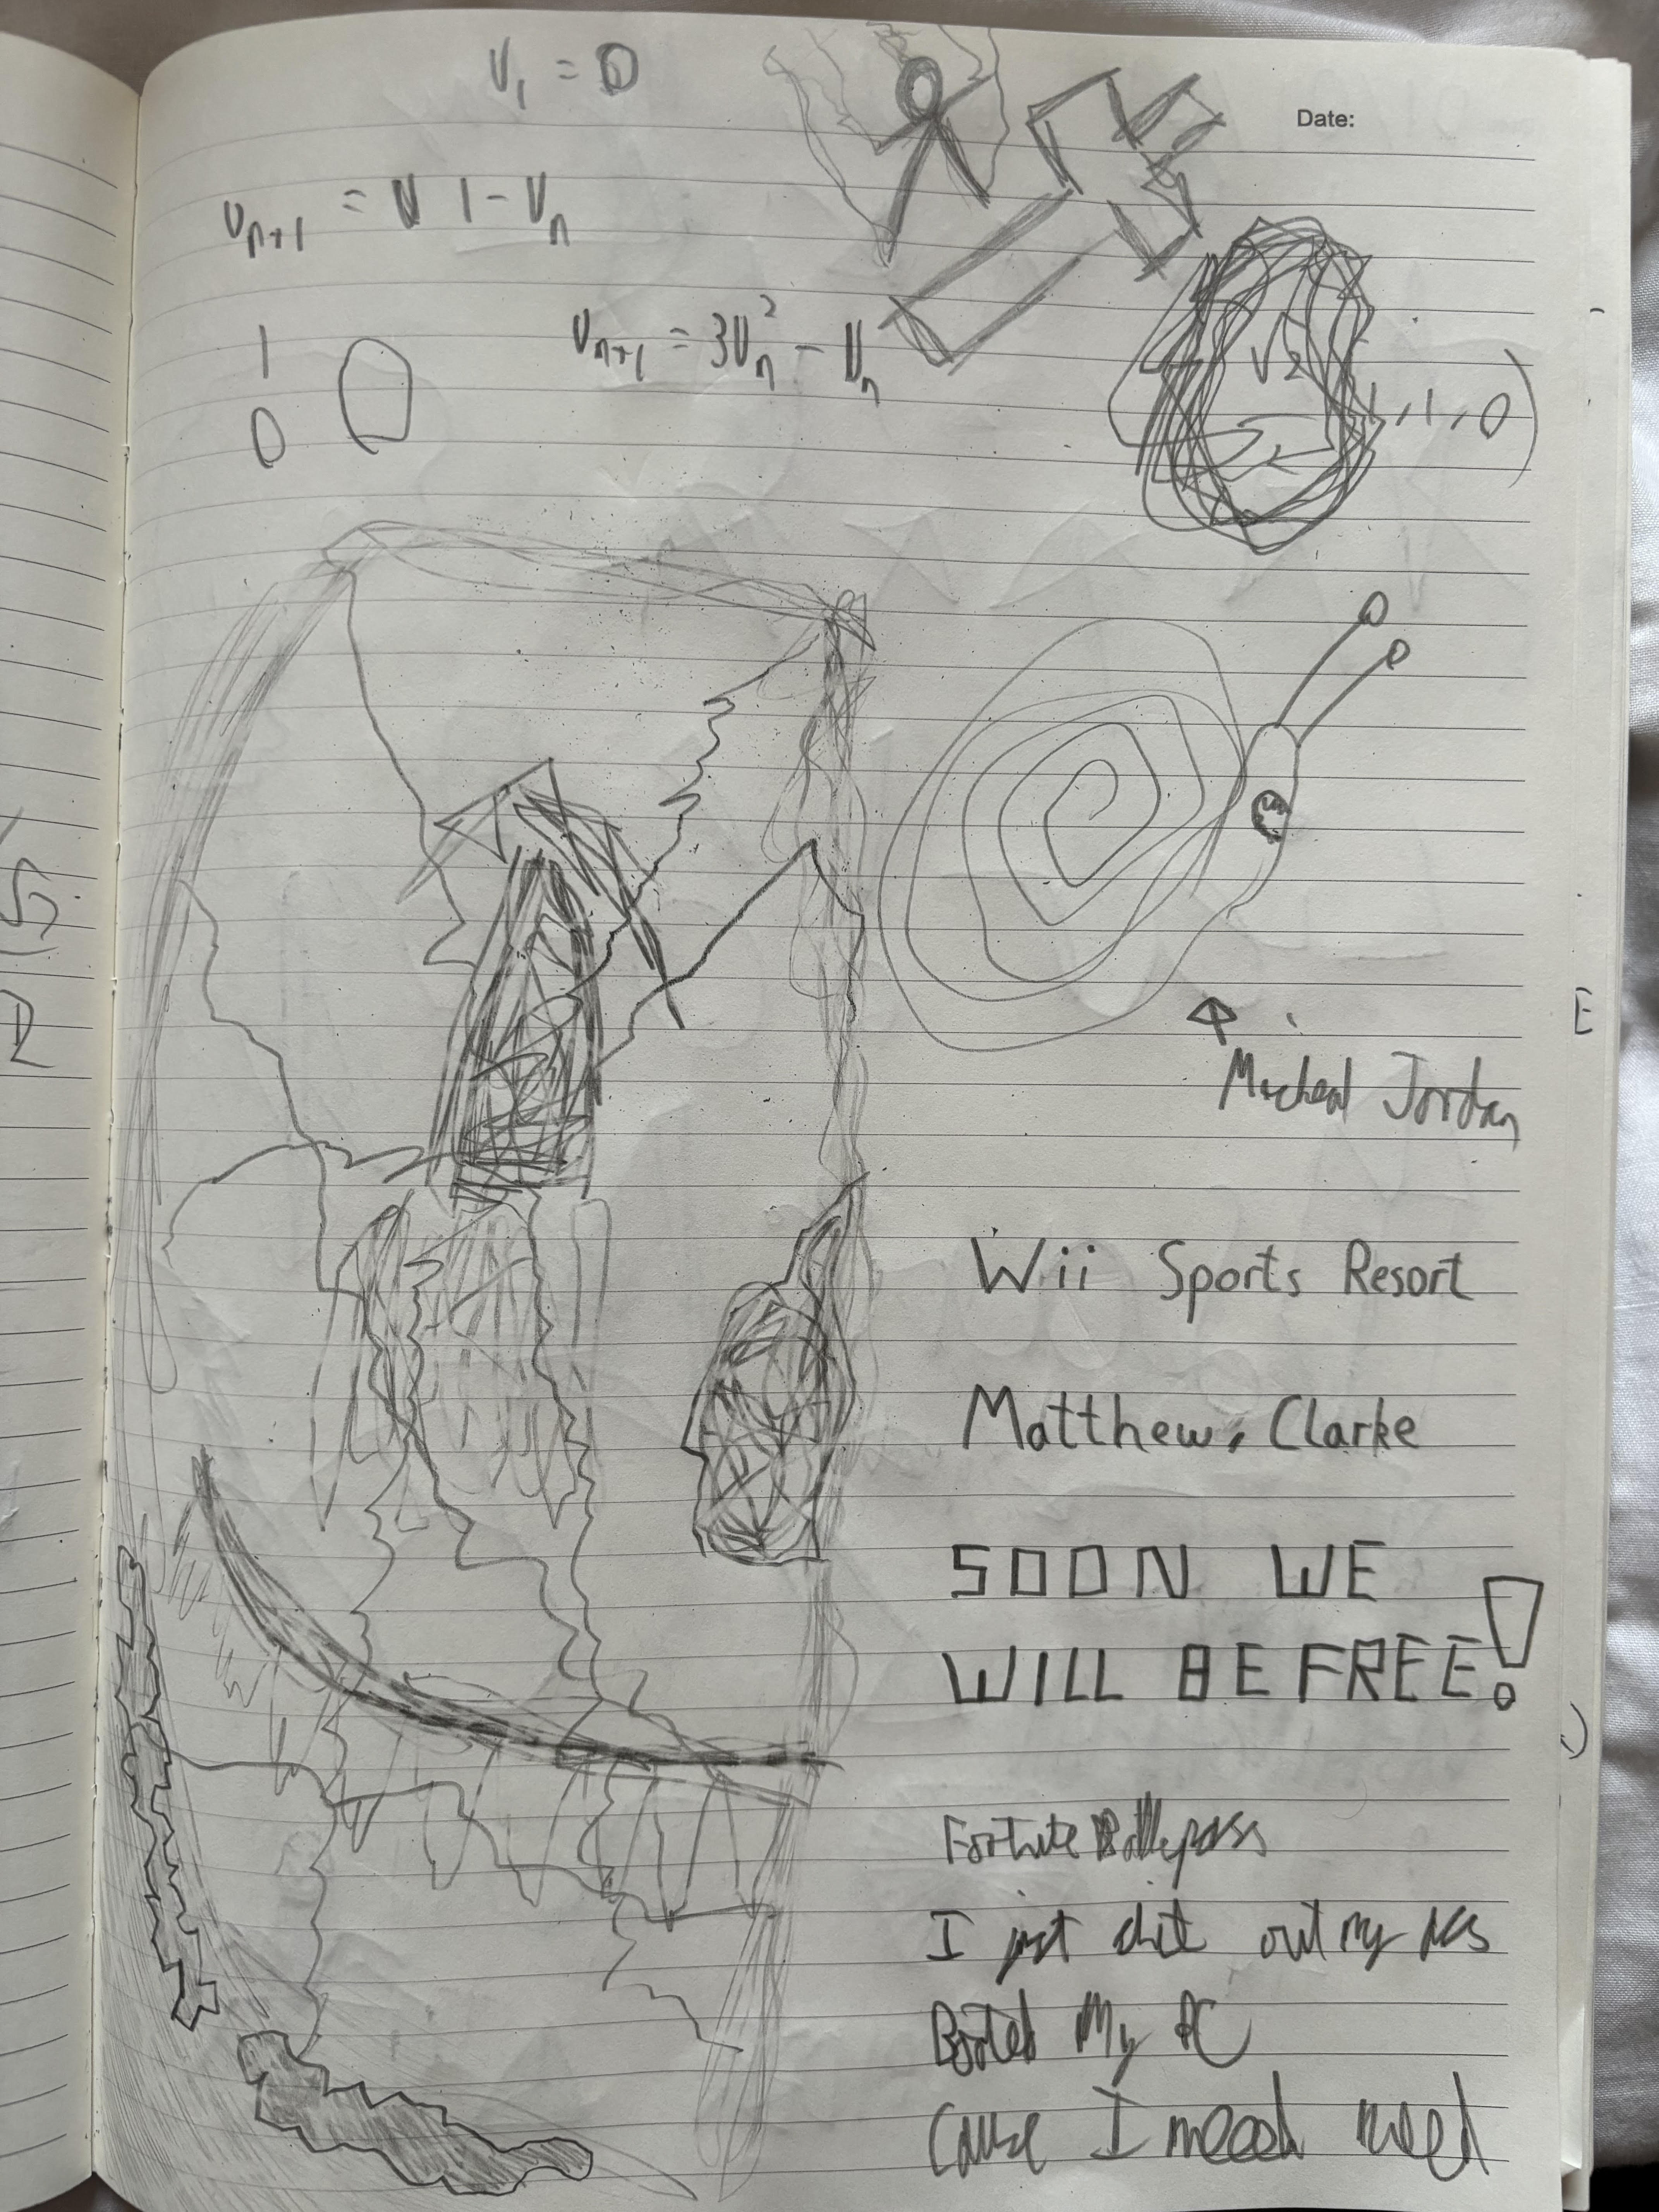 V₁ = 0
Date:
Uₙ₊₁ = 1 - Vₙ
1
0
Uₙ₊₁ = 3Uₙ² - Uₙ
√2
1, 1, 0)
Micheal Jordan
Wii Sports Resort
Matthew, Clarke
SOON WE
WILL BE FREE!
Fortnite Battlepass
I just shit out my ass
Booted My PC
Cause I need need